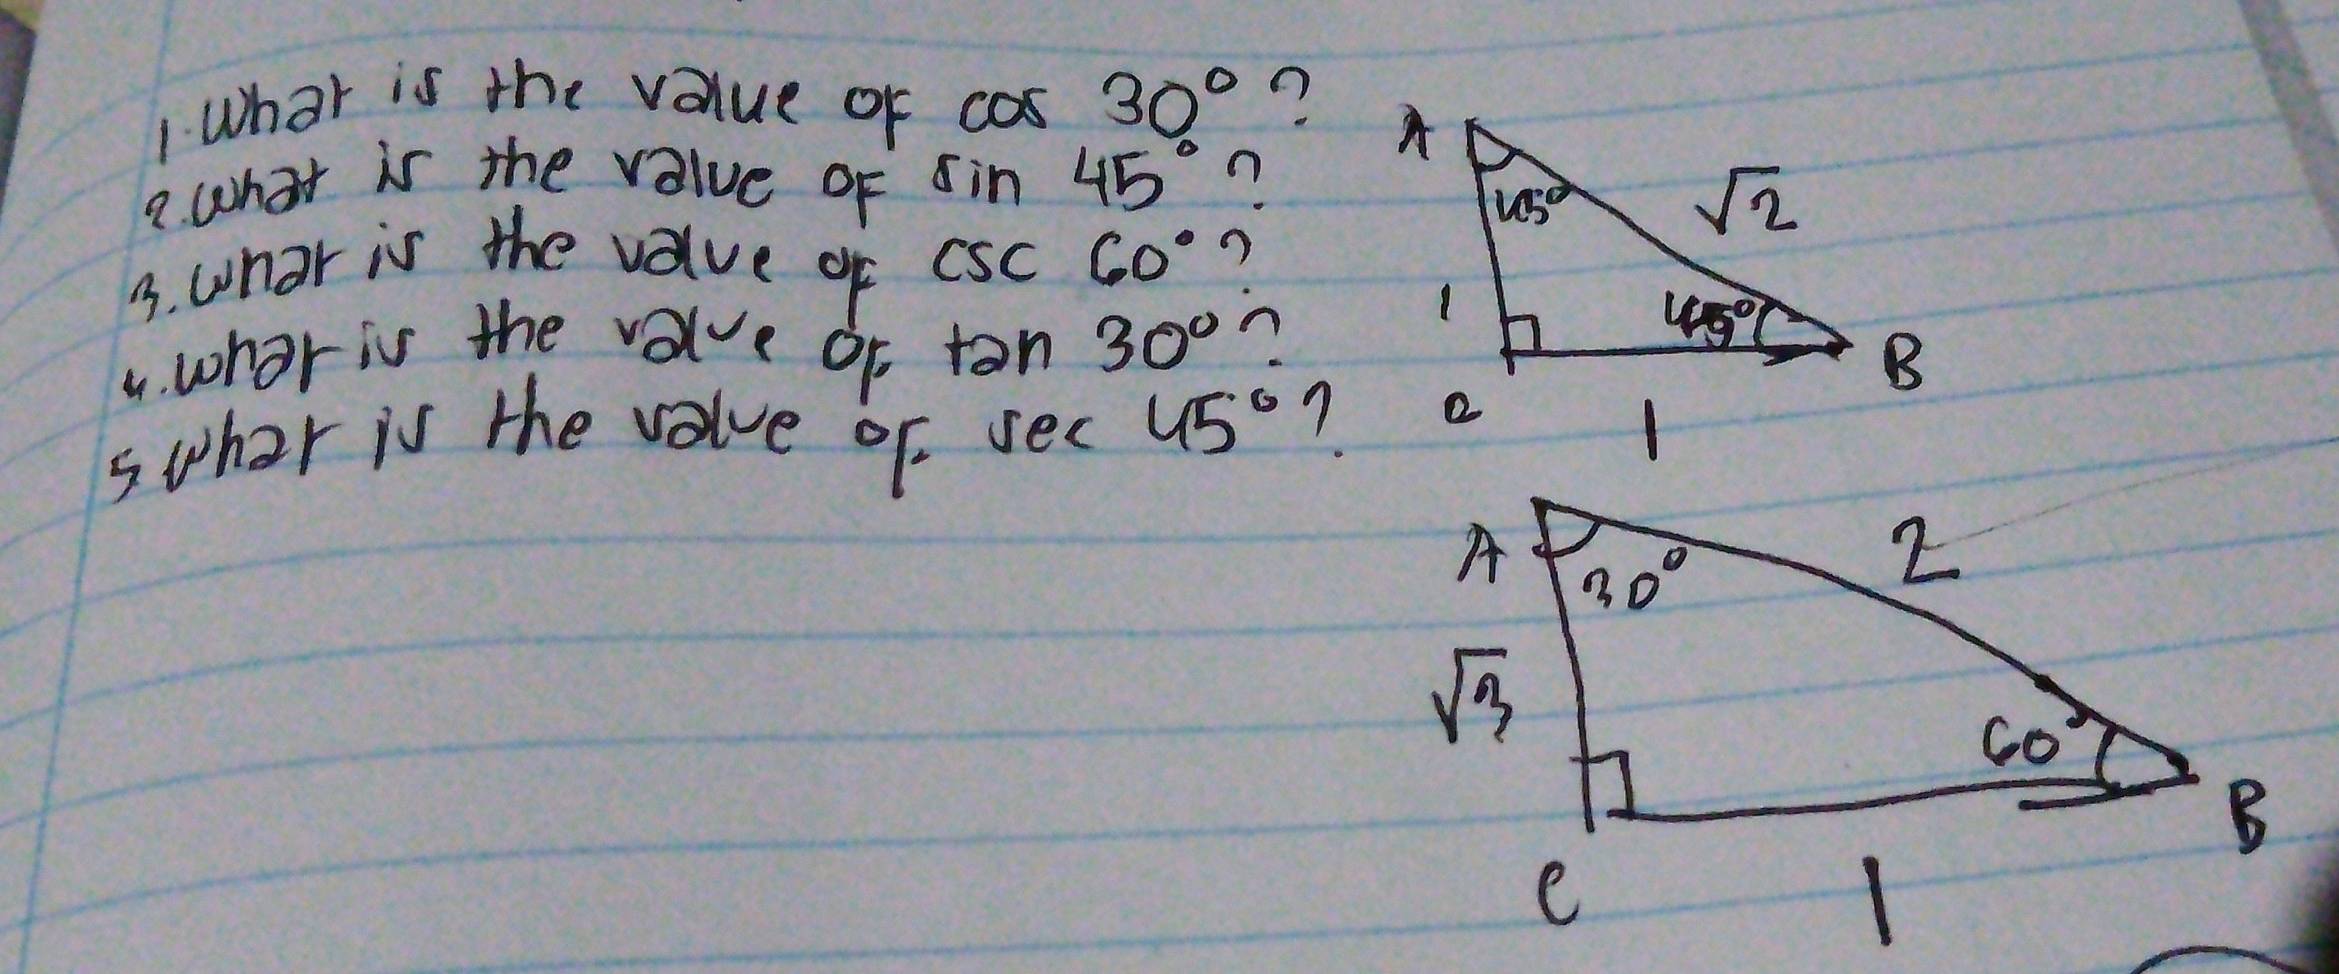 1. What is the value of cos 30°?
2. What is the value of sin 45°?
3. What is the value of csc 60°?
4. What is the value of tan 30°?
5 What is the value of sec 45°?
A
45°
√2
1
45°
B
1
A
30°
2
√3
60°
B
C
1